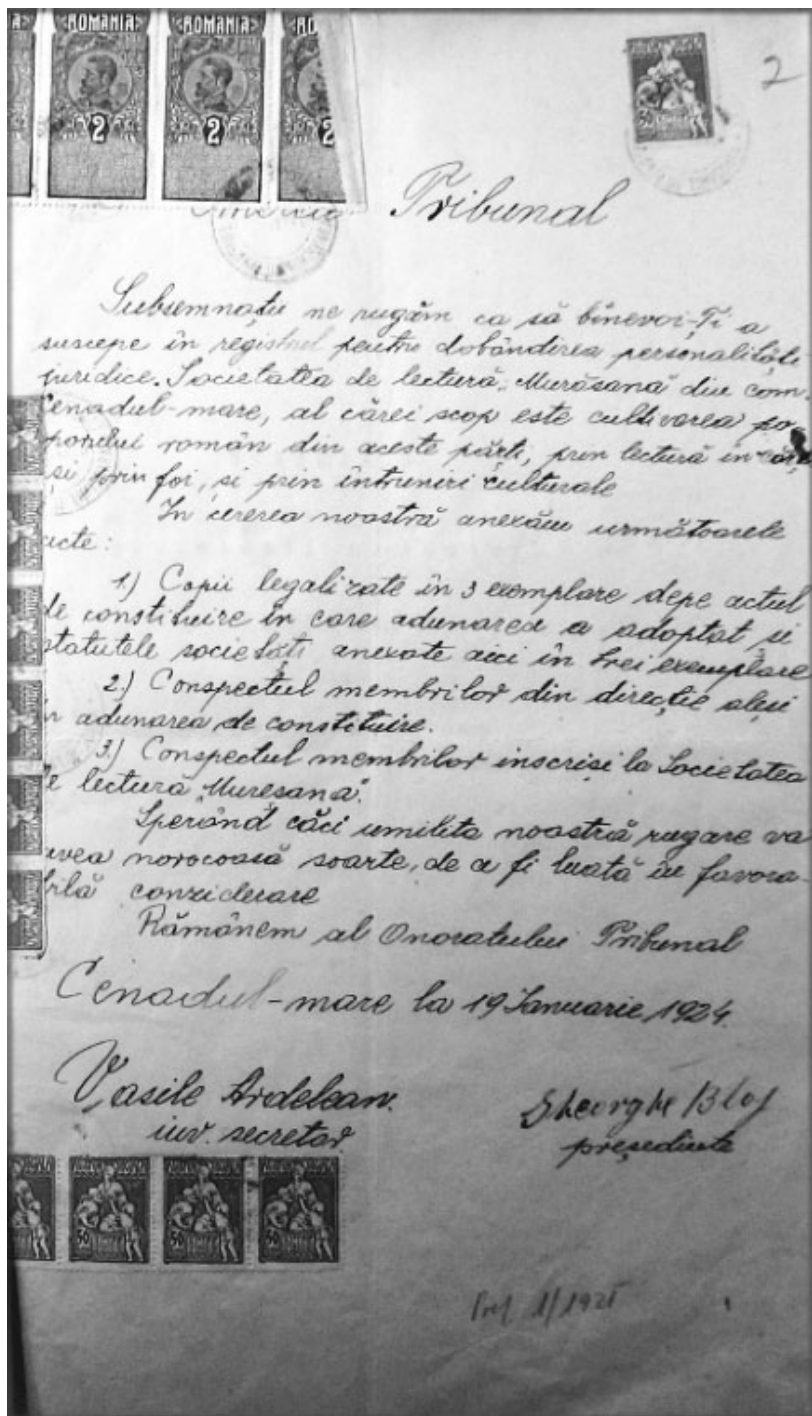 ROMANIA ROMANIA
2 2
50
2
Tribunal
Subsemnații ne rugăm ca să binevoi-Ți a
suscepe în registrul pentru dobândirea personalități
juridice. Societatea de lectură „Murășană" din com.
Cenadul-mare, al cărei scop este cultivarea po-
porului român din aceste părți, prin lectură în
și prin foi, și prin întruniri culturale
In cererea noastră anexăm următoarele
acte:
1.) Copii legalizate în 3 exemplare depe actul
de constituire în care adunarea a adoptat și
statutele societăți anexate aici în trei exemplare
2.) Conspectul membrilor din direcție aleși
în adunarea de constituire.
3.) Conspectul membrilor inscriși la Societatea
de lectură „Mureșană".
Sperând căci umilita noastră rugare va
avea norocoasă soarte, de a fi luată în favora-
bilă conziderare
Rămânem al Onoratului Tribunal
Cenadul-mare la 19 Ianuarie 1924.
Vasile Ardelean.
inv. secretar
Gheorghe Bloj
președinte
50 50 50
1/1925